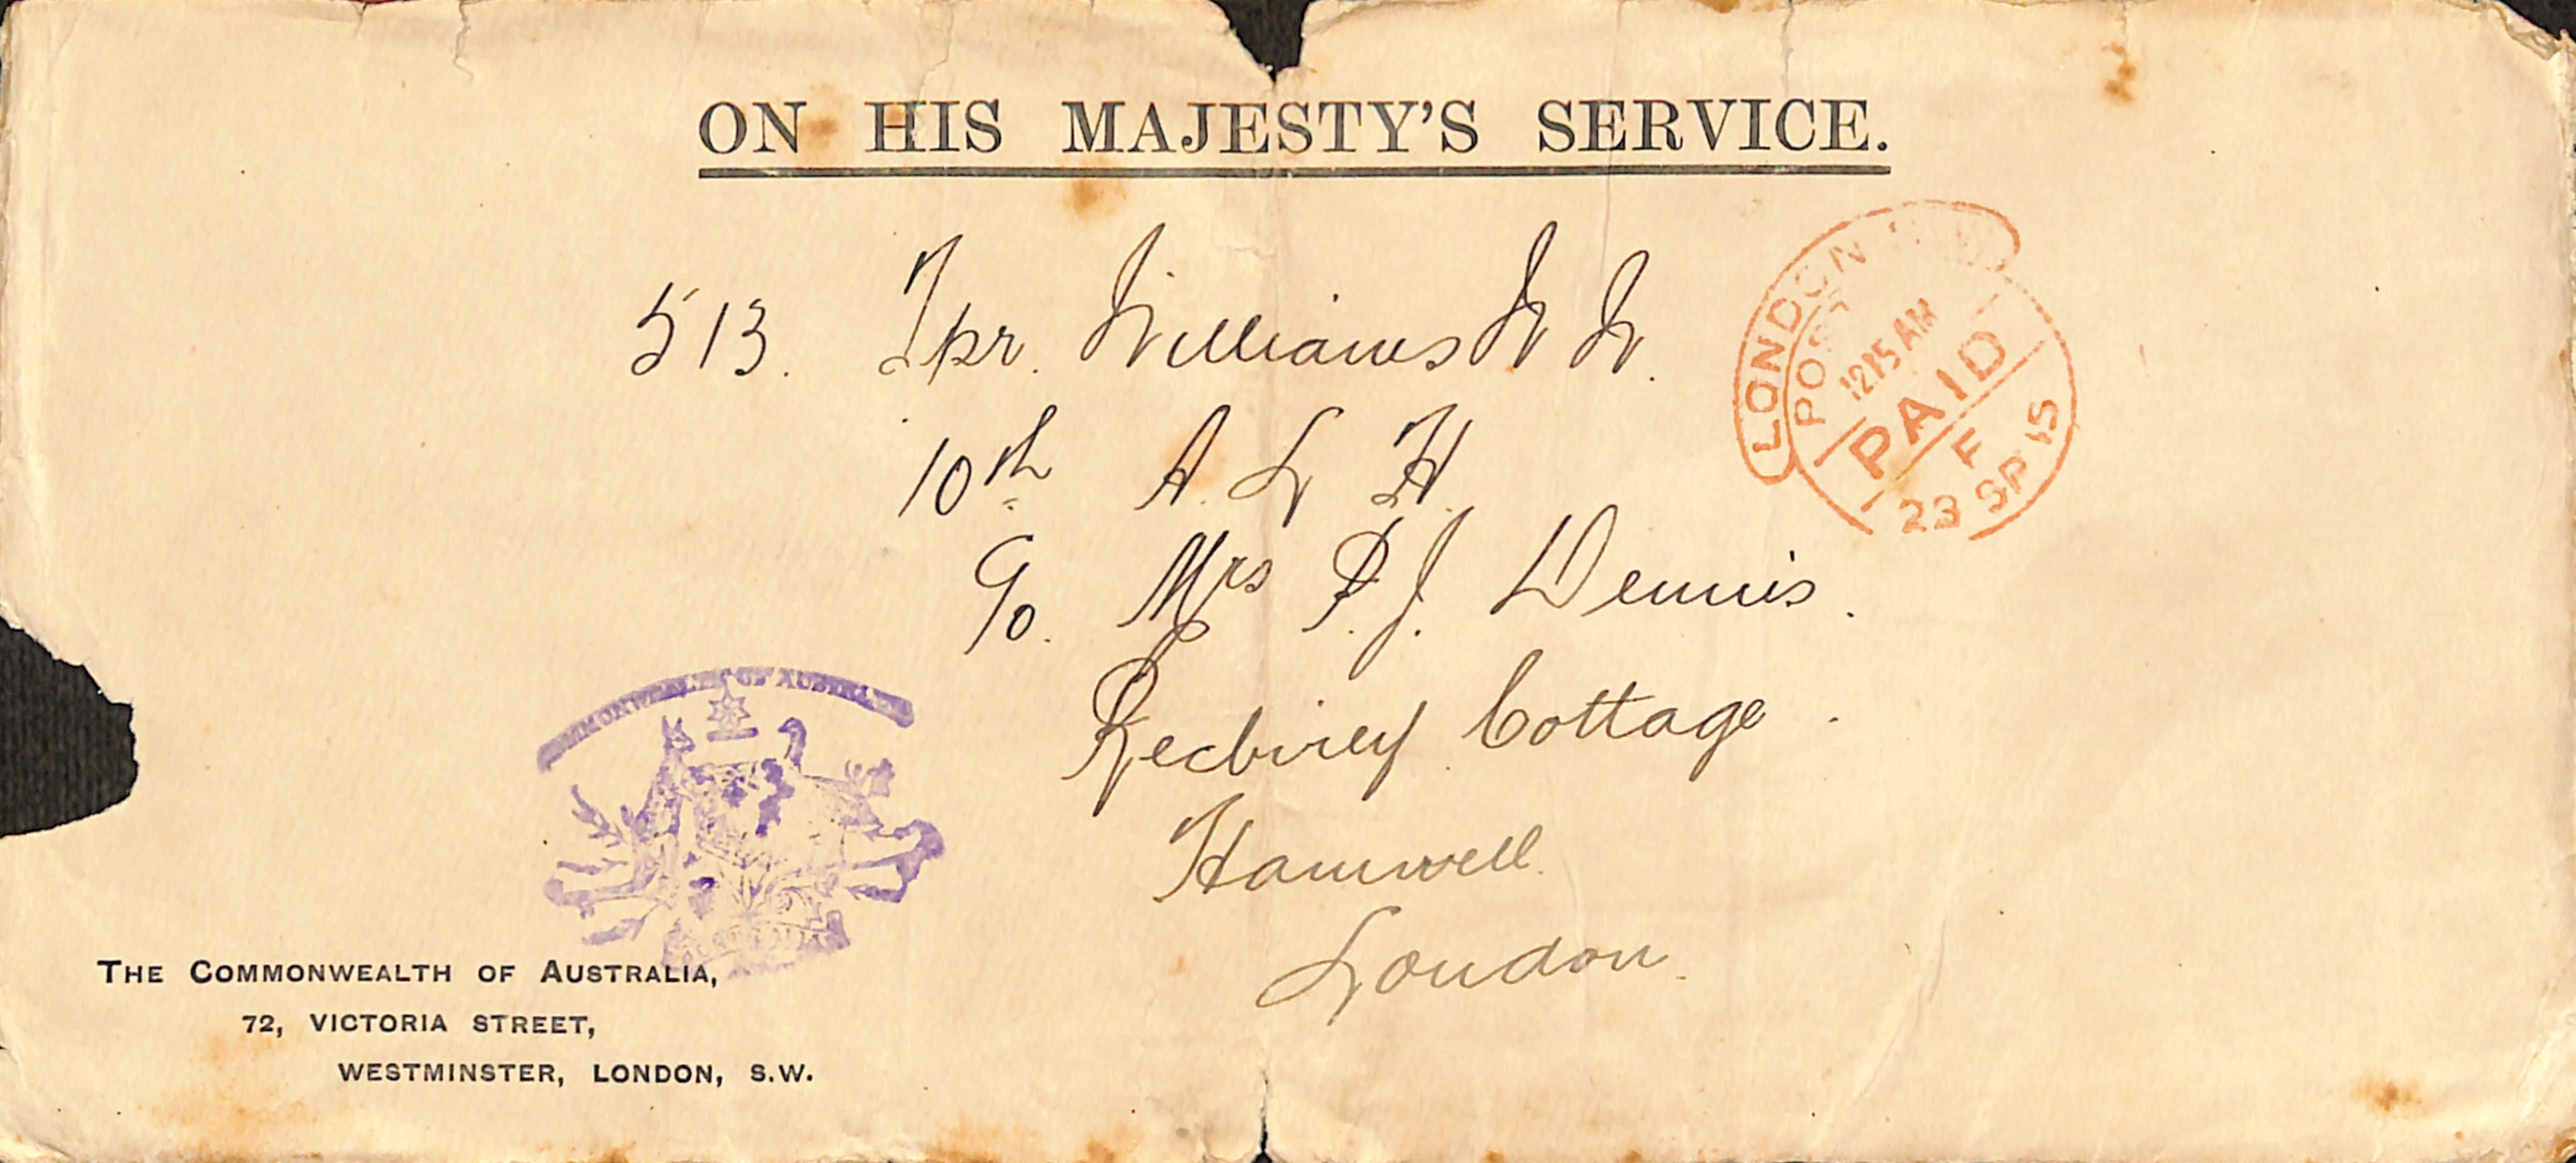 ON HIS MAJESTY'S SERVICE.
513. Tpr. Williams W W.
10th A. L H.
c/o. Mrs P. J. Dennis.
Cottage.
Hanwell.
London.
LONDON
POST
12 15 AM
PAID
F
23 SP 15
COMMONWEALTH OF AUSTRALIA
THE COMMONWEALTH OF AUSTRALIA,
72, VICTORIA STREET,
WESTMINSTER, LONDON, S.W.